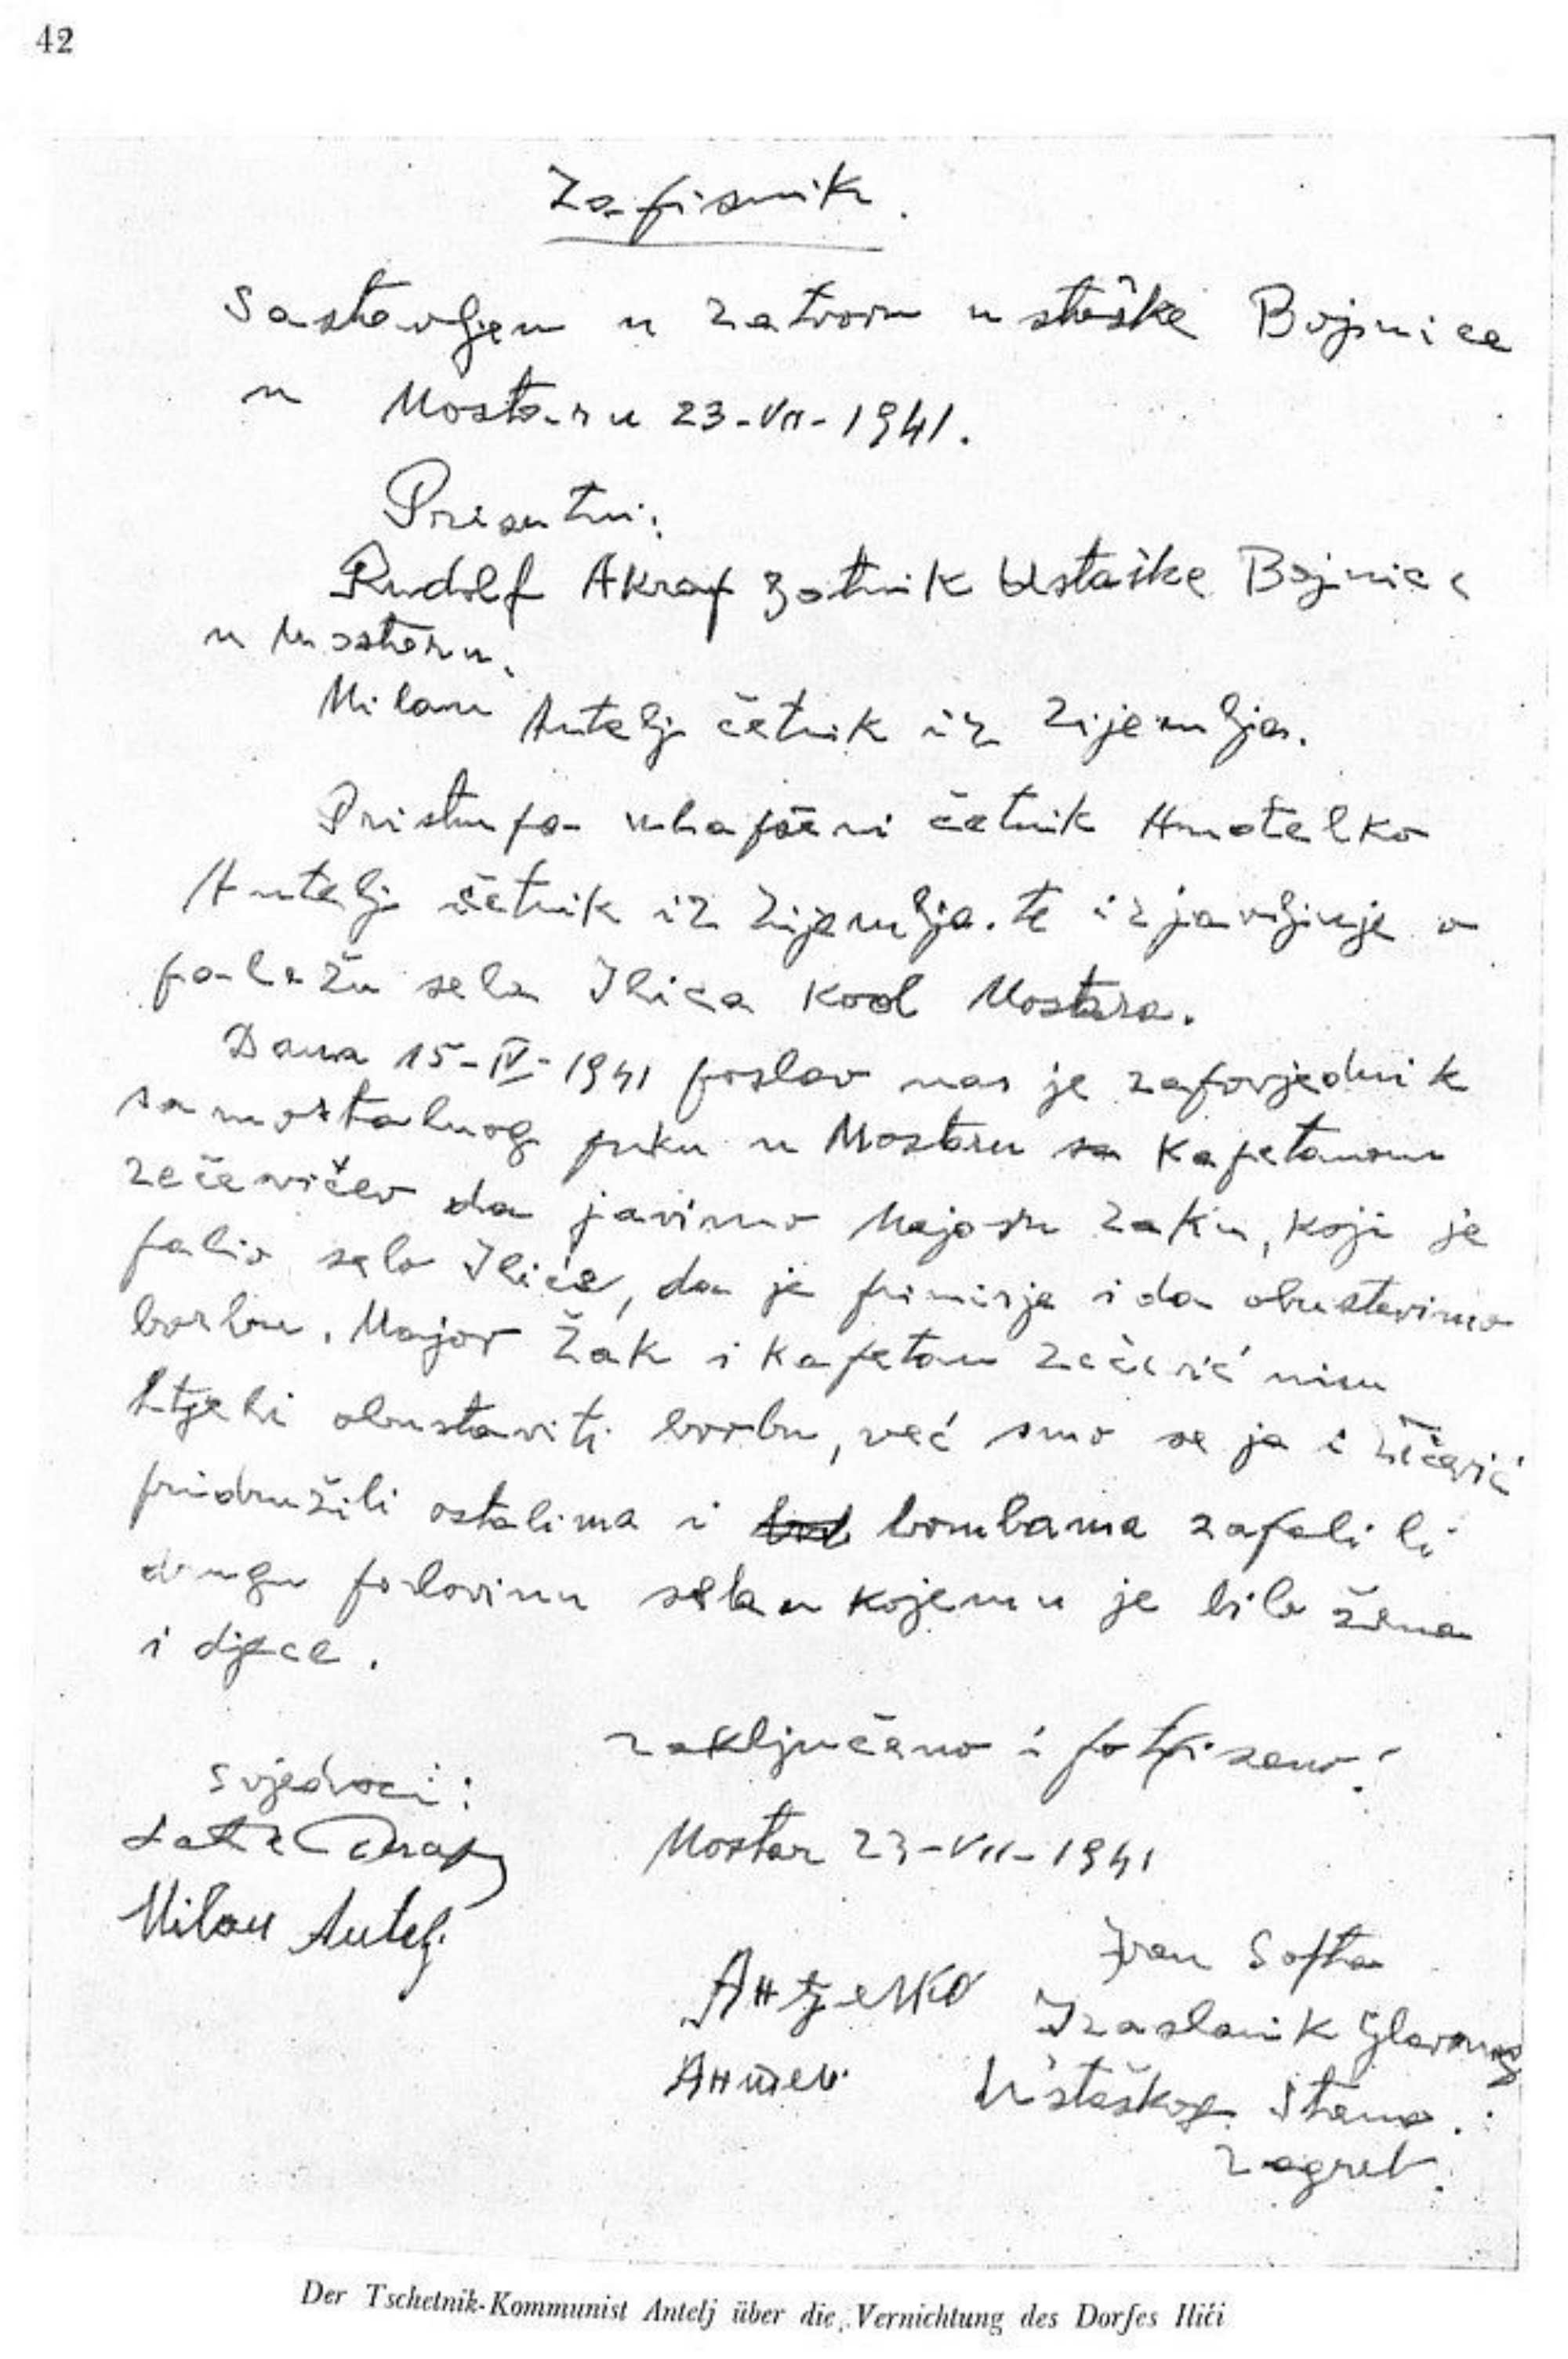 42
Zapisnik.
Sastavljen u zatvoru ustaške Bojnice
u Mostaru 23-VII-1941.
Prisutni:
Rudolf Akrap Satnik Ustaške Bojnice
u Mostaru.
Milan Antelj četnik iz Zijemlja.
Pristupa uhapšeni četnik
Antelj četnik iz Zijemlja. te izjavljuje o
paležu sela Ilića kod Mostara.
Dana 15-IV-1941 poslao nas je zapovjednik
samostalnog puka u Mostaru sa Kapetanom
Zečevićev da javimo Majoru Zaku, koji je
palio selo Iliće, da je primirje i da obustavimo
borbu. Major Žak i Kapetan Zečević nisu
htjeli obustaviti borbu, već smo se ja i Zečević
pridružili ostalima i bombama zapalili
drugu polovinu sela u kojemu je bilo žena
i djece.
zaključeno i potpisano!
Svjedoci:
Mostar 23-VII-1941
Milan Antelj
Ivan Softa
Izaslanik Glavnog
Ustaškog Stana.
Zagreb.
Der Tschetnik-Kommunist Antelj über die Vernichtung des Dorfes Ilići